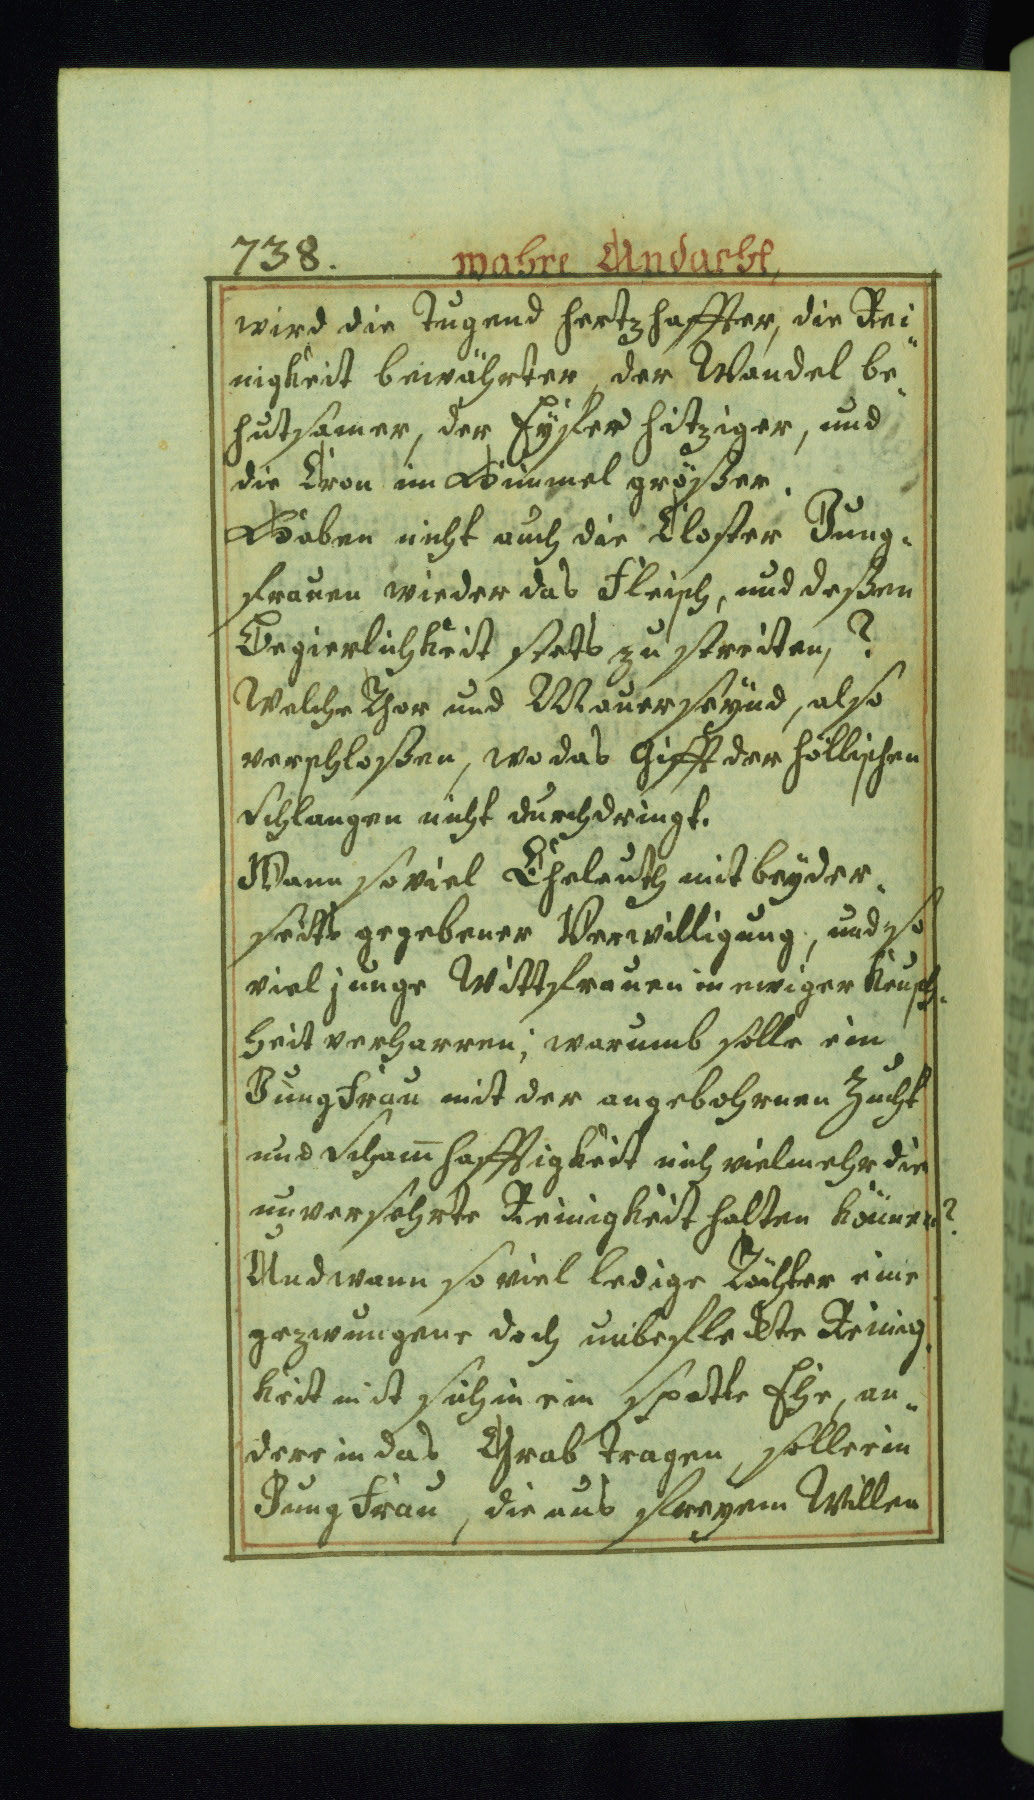 738. wahre Andacht,
wird die Tugend hertzhaffter, die Rei-
nigkeit bewährter, der Wandel be-
hutsamer, der Eyfer hitziger, und
die Cron im Himmel größer.
Haben nicht auch die Closter Jung-
frauen wieder das Fleisch, und deßen
Begierlichkeit stets zu streiten,?
Welche Thor und Mauer seynd, also
verschloßen, wo das Gifft der höllischen
Schlangen nicht durchdringt.
Wann so viel Eheleuth mit beyder-
seits gegebener Verwilligung, und so
viel junge Wittfrauen in ewiger Keusch-
heit verharren; warumb solle ein
Jungfrau mit der angebohrnen Zucht
und Scham̄hafftigkeit nich vielmehr die
unversehrte Reinigkeit halten können?
Und wann so viel ledige Töchter eine
gezwungene doch unbefleckte Reinig-
keit mit sich in ein spatte Ehe, an-
dere in das Grab tragen, solle ein
Jungfrau, die aus freyem Willen